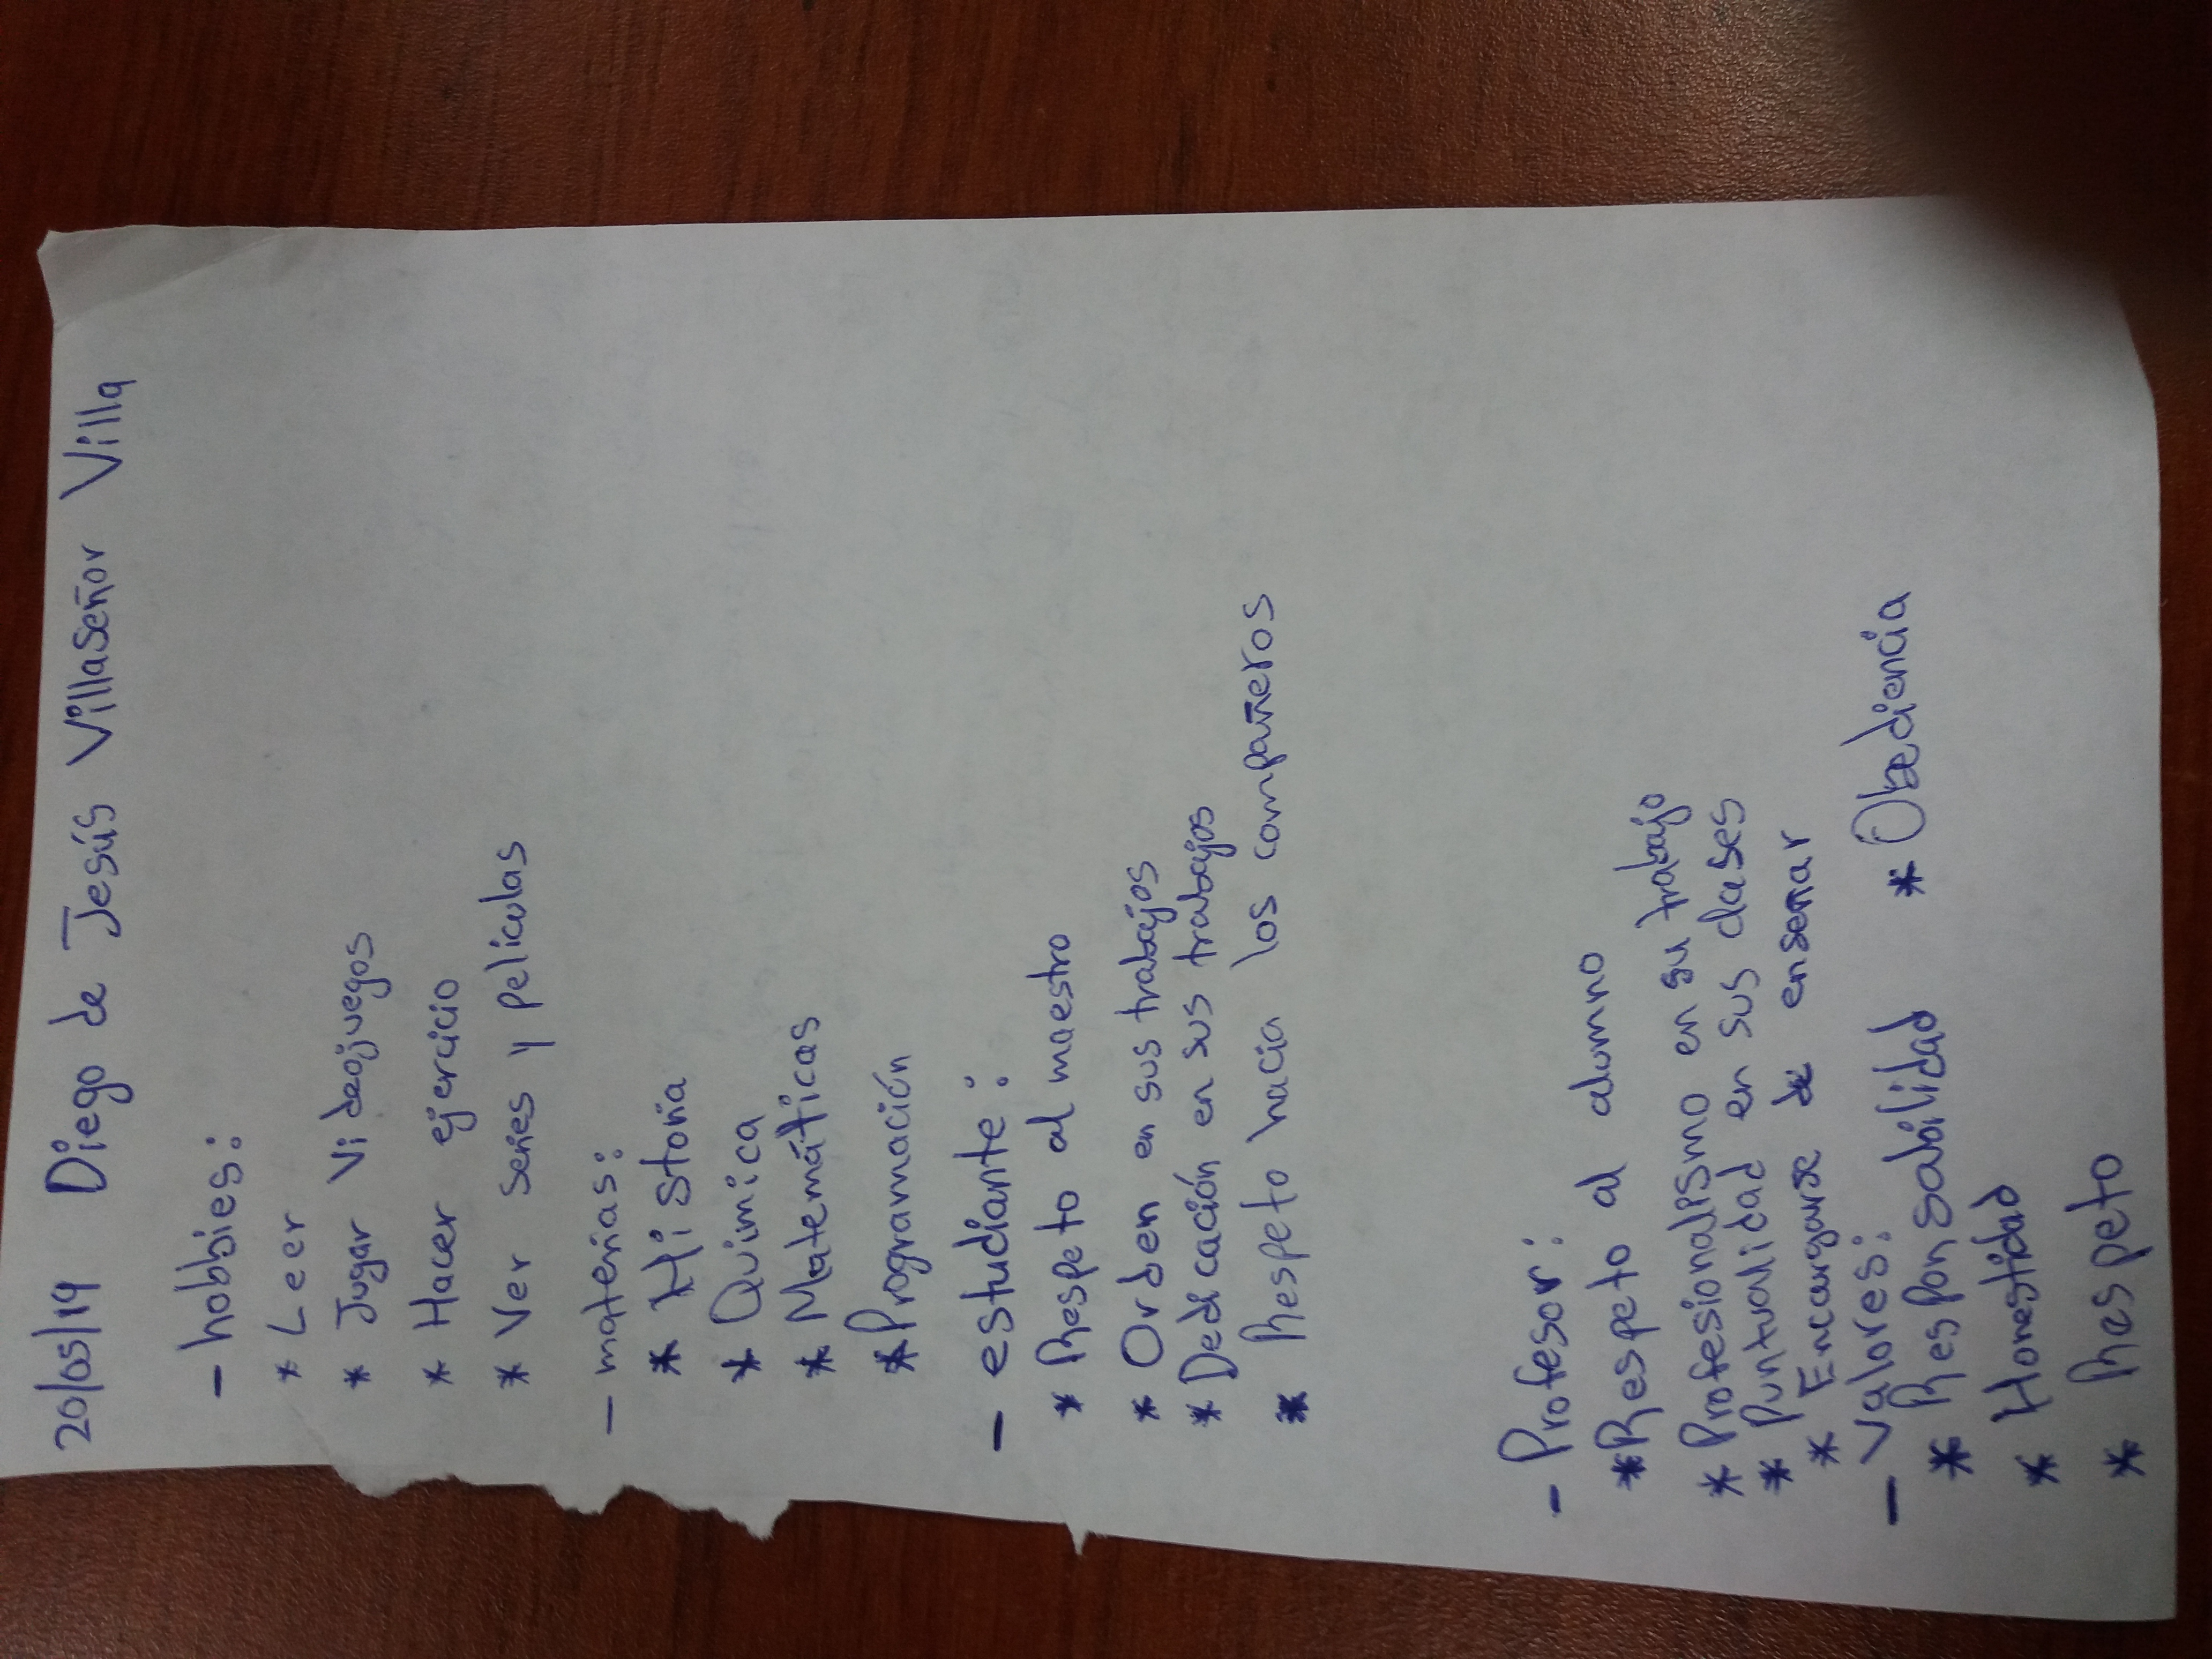 20/05/19 Diego de Jesús Villaseñor Villa
- hobbies:
* Leer
* Jugar Videojuegos
* Hacer ejercicio
* Ver series y películas
- materias:
* Historia
* Quimica
* Matemáticas
* Programación
- estudiante:
* Respeto al maestro
* Orden en sus trabajos
* Dedicación en sus trabajos
* Respeto hacia los compañeros
- Profesor:
* Respeto al alumno
* Profesionalismo en su trabajo
* Puntualidad en sus clases
* Encargarse de enseñar
- Valores:
* Responsabilidad * Obediencia
* Honestidad
* Respeto